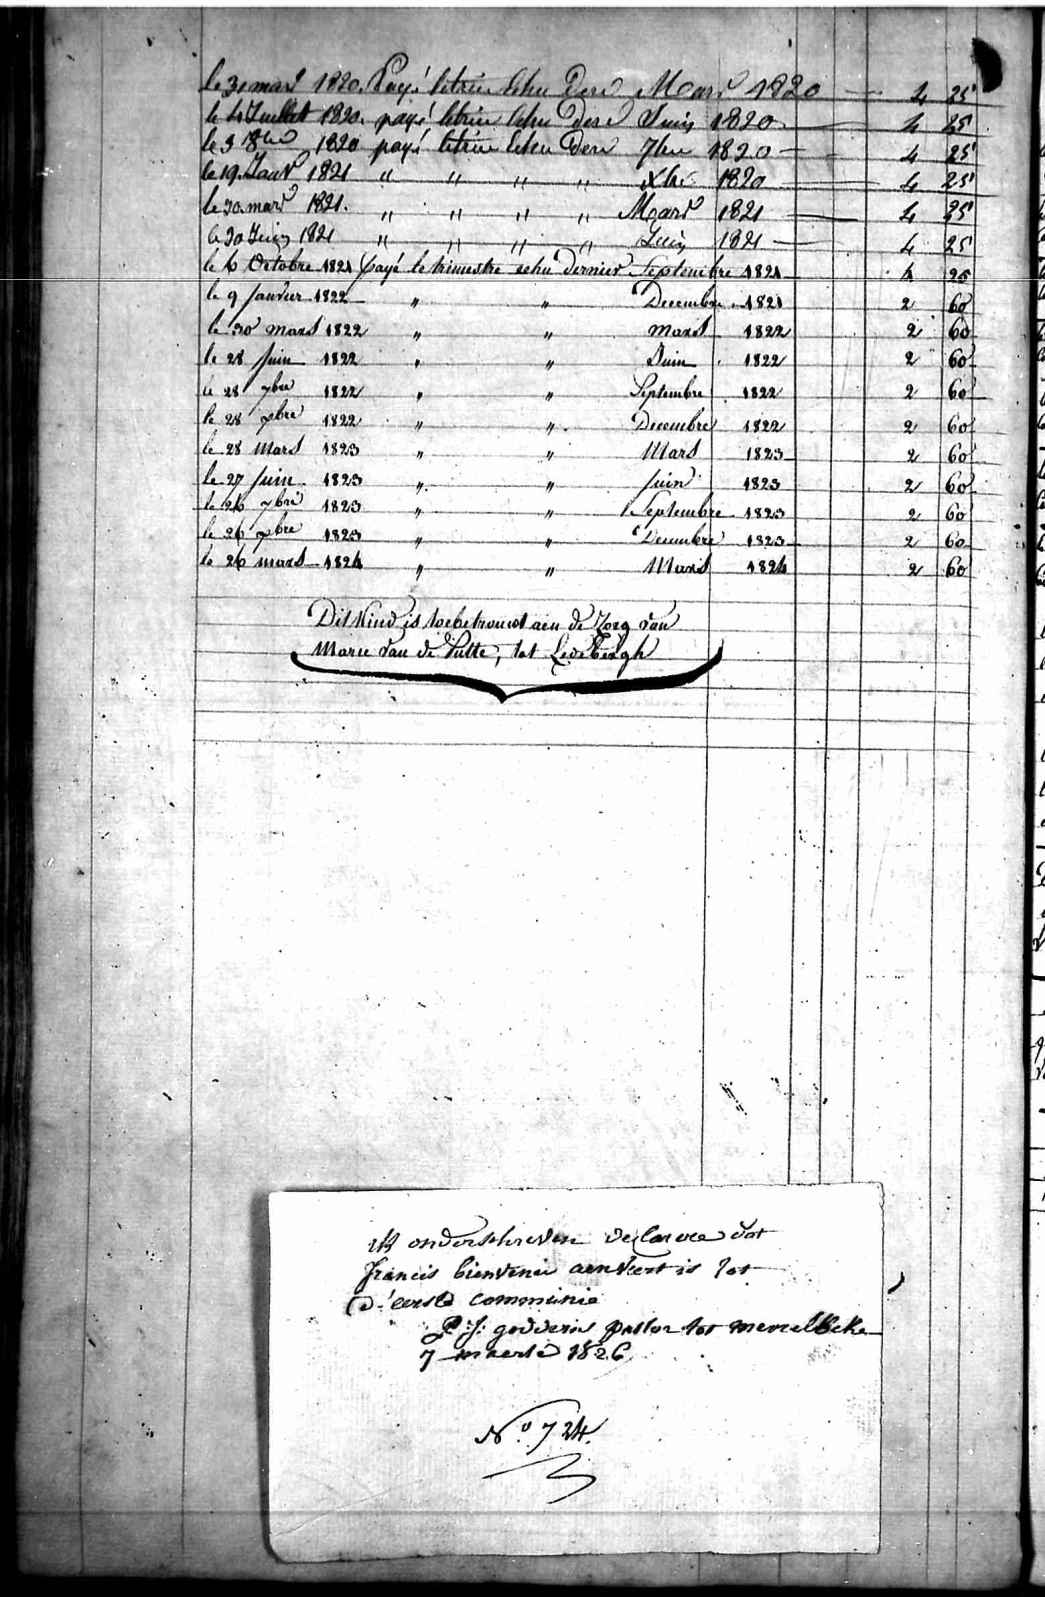 le 31 mars 1820. Payé letrim echu Dere Mars 1820 — 4 25
le 4 Juillet 1820. payé letrim echu Dere Juin 1820 — 4 25
le 3 8bre 1820 payé letrim echu Dere 7bre 1820 — 4 25
le 19 Janv 1821 " " " " Xbr 1820 — 4 25
le 30 mars 1821. " " " " Mars 1821 — 4 25
le 30 Juin 1821 " " " " Juin 1821 — 4 25
le 6 Octobre 1821 payé le trimestre echu Dernier Septembre 1821 4 25
le 9 Janvier 1822 " " Decembre 1821 2 60
le 30 mars 1822 " " mars 1822 2 60
le 28 Juin 1822 " " Juin 1822 2 60
le 28 7bre 1822 " " Septembre 1822 2 60
le 28 xbre 1822 " " Decembre 1822 2 60
le 28 Mars 1823 " " Mars 1823 2 60
le 27 Juin 1823 " " Juin 1823 2 60
le 26 7bre 1823 " " Septembre 1823 2 60
le 26 xbre 1823 " " Decembre 1823 2 60
le 26 mars 1824 " " Mars 1824 2 60
Dit Kind is toebetrouwt aen de Zorg van
Marie van de Putte, tot Ledebergh
ik onderschreven declarere dat
francis bienvenu aenveert is tot
d'eerste communie
P. J. godderis pastor tot merelbeke
7 maerte 1826
No. 724.